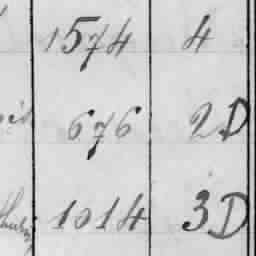 1574 4
676 2D
1014 3D